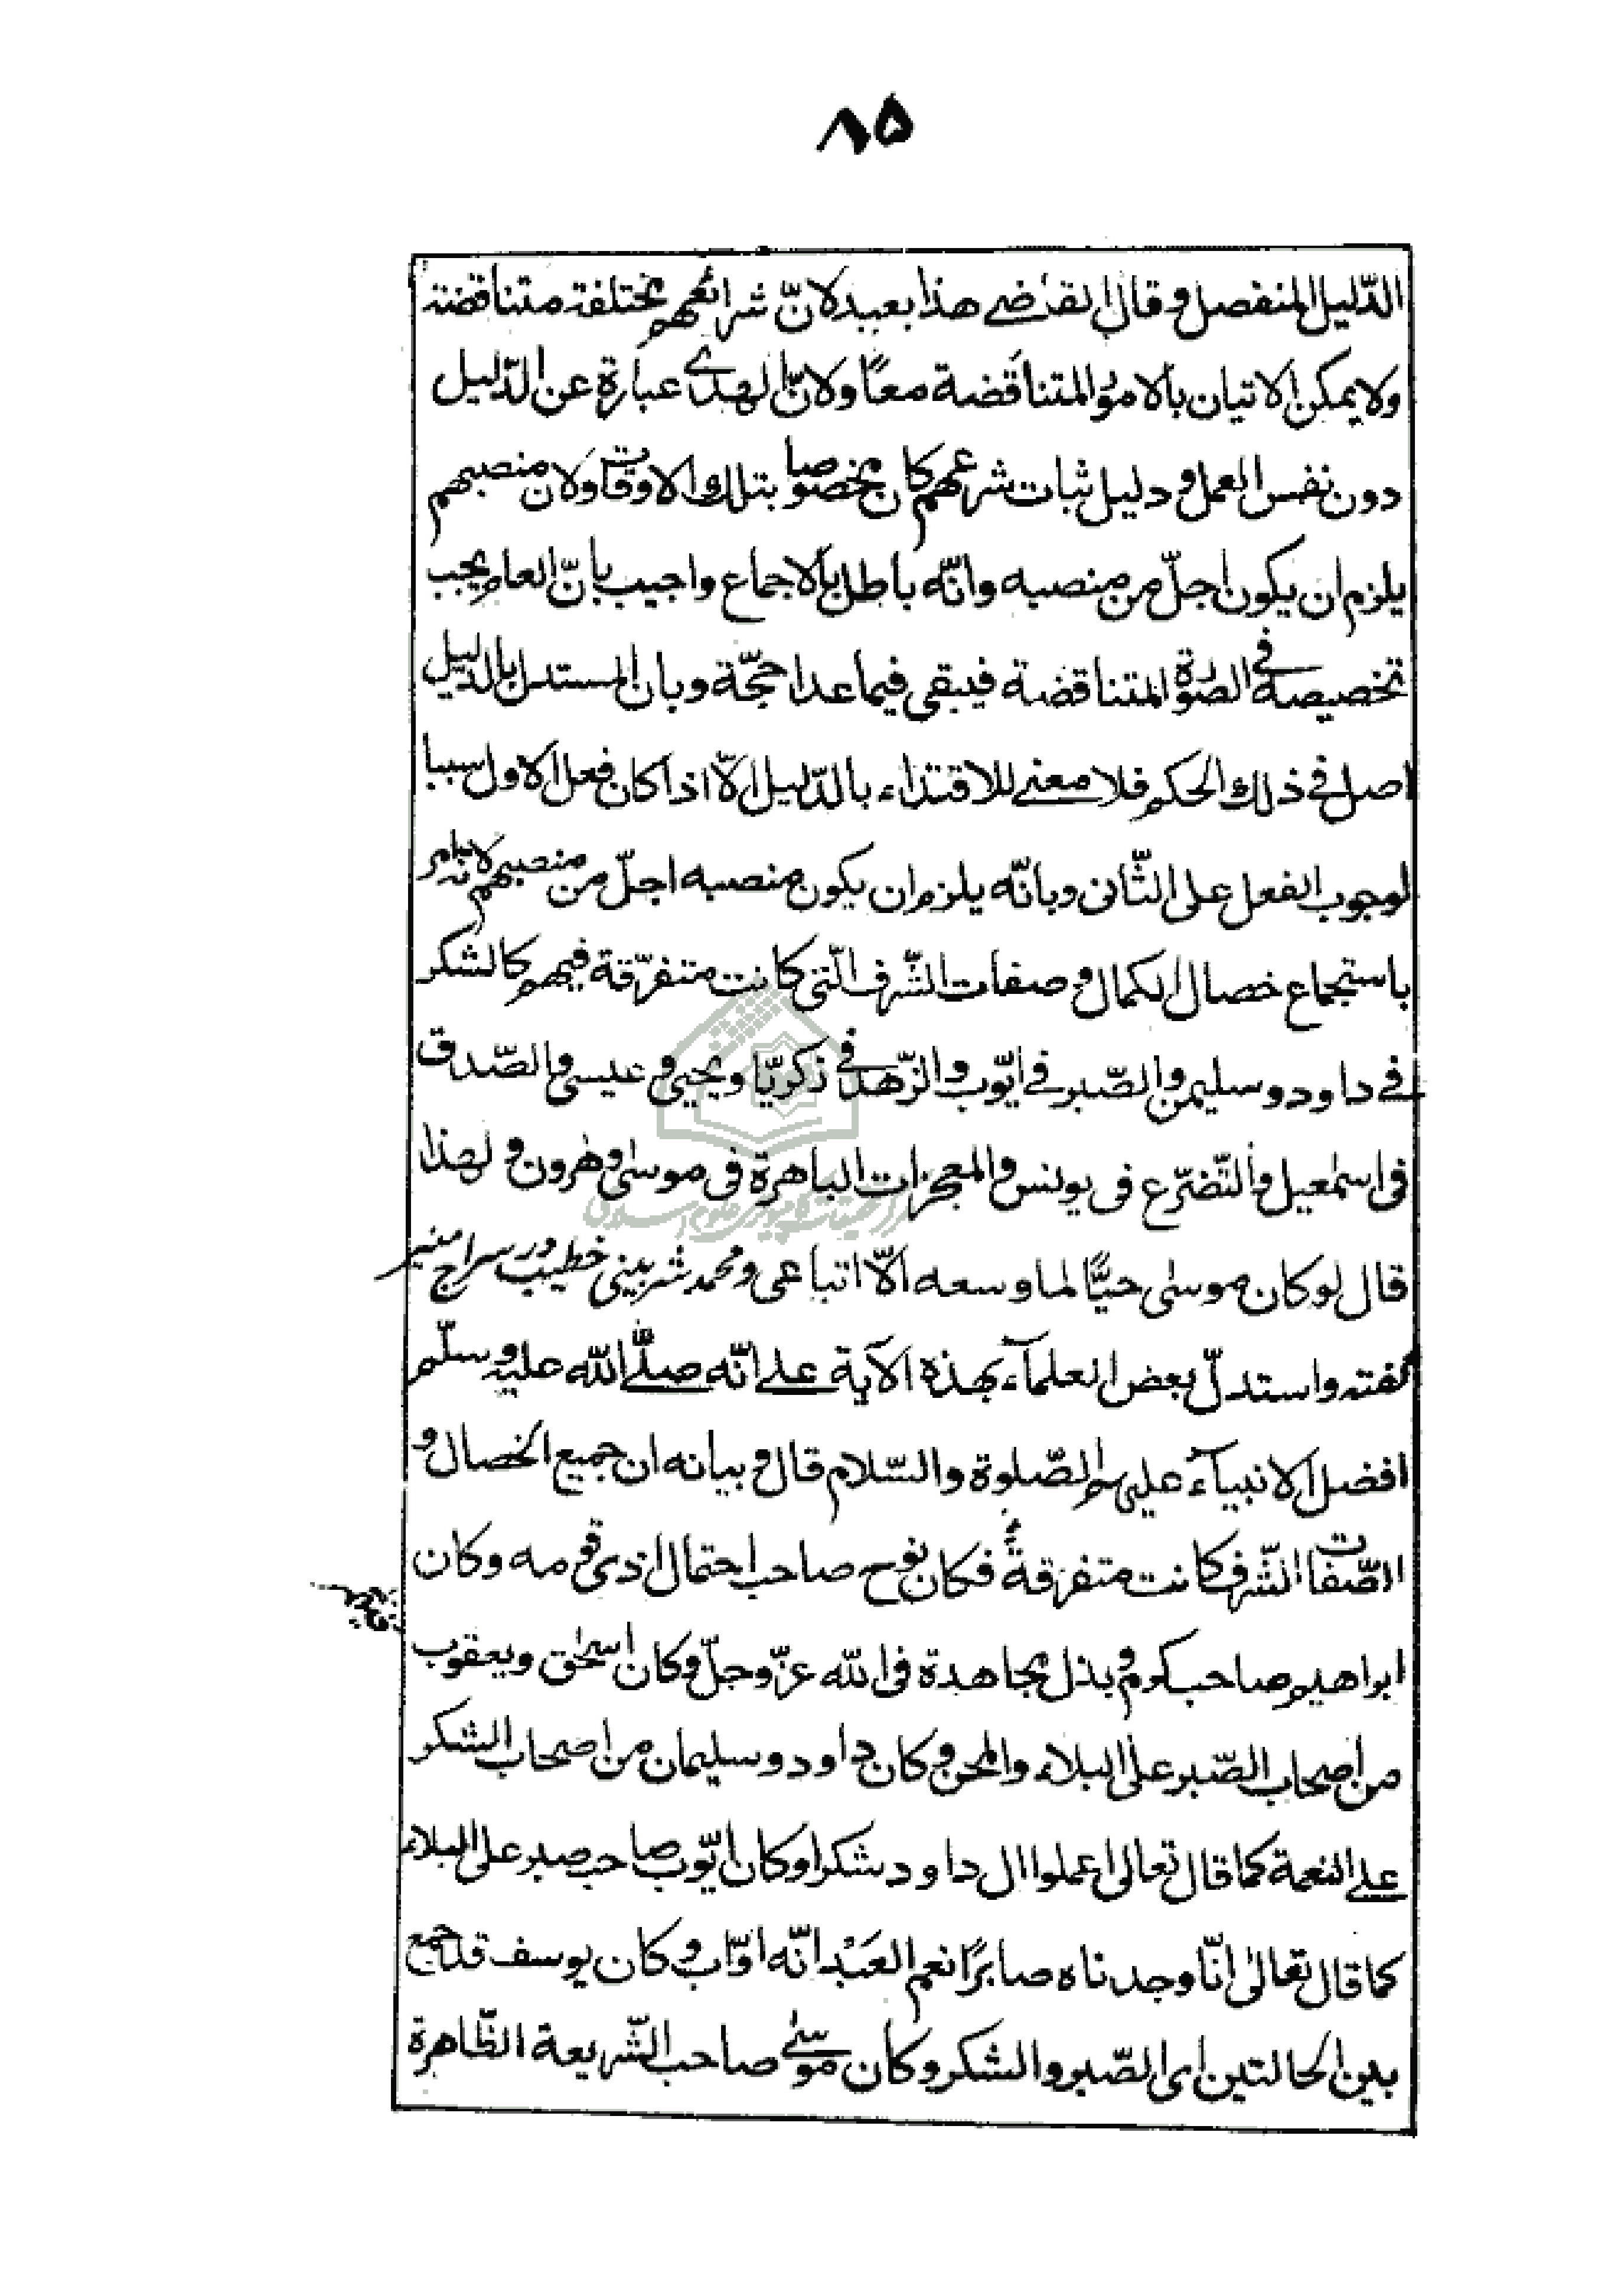 ٨٥
الدّليل المنفصل وقال القاضى هذا بعيد لانّ شرائعهم مختلفة متناقضة
ولا يمكن الاتيان بالامور المتناقضة معًا ولانّ الهدى عبارة عن الدّليل
دون نفس العمل و دليل ثبات شرعهم كان مخصوصا بتلك الاوقات ولان منصبهم
يلزم ان يكون اجلّ من منصبه وانّه باطل بالاجماع واجيب بانّ العام يجب
تخصيصه فى الصّورة المتناقضة فيبقى فيما عداها حجّة وبان المستدل بالدليل
اصل فى ذلك الحكم فلا معنى للاقتداء بالدّليل الّا اذا كان فعل الاول سببا
لوجوب الفعل على الثّانى وبانّه يلزم ان يكون منصبه اجلّ من منصبهم لانه امر
باستجماع خصال الكمال و صفات الشّرف الّتى كانت متفرّقة فيهم كالشكر
فى داود و سليمن والصّبر فى ايّوب والزّهد فى ذكريّا ويحيى و عيسى والصّدق
فى اسمٰعيل والتّضرّع فى يونس والمعجزات الباهرة فى موسى وهٰرون و لهذا
قال لو كان موسٰى حيًّا لما وسعه الّا اتباعى و محمد شربينى خطيب در سراج منير
گفته واستدلّ بعض العلمآء بهذه الآية على انّه صلّى الله عليه وسلّم
افضل الانبيآء عليهم الصّلوة والسّلام قال و بيانه ان جميع الخصال و
الصّفات الشّرف كانت متفرقةً فكان نوح صاحب احتمال اذى قومه وكان
ابراهيم صاحب كرم و بذل مجاهدة فى الله عزّ وجلّ وكان اسحٰق ويعقوب
من اصحاب الصّبر على البلاء والمحن و كان داود و سليمان من اصحاب الشكر
على النعمة كما قال تعالى اعملوا ال داود شكرا وكان ايّوب صاحب صبر على البلاء
كما قال تعالىٰ انّا وجدناه صابرًا نعم العَبْد انّه اوّاب و كان يوسف قد جمع
بين الحالتين اى الصّبر والشكر و كان موسٰى صاحب الشّريعة الظّاهرة